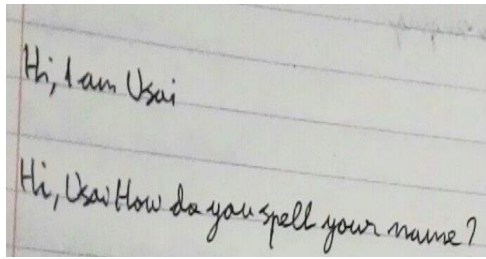 Hi, I am Usai
Hi, Usai How do you spell your name?